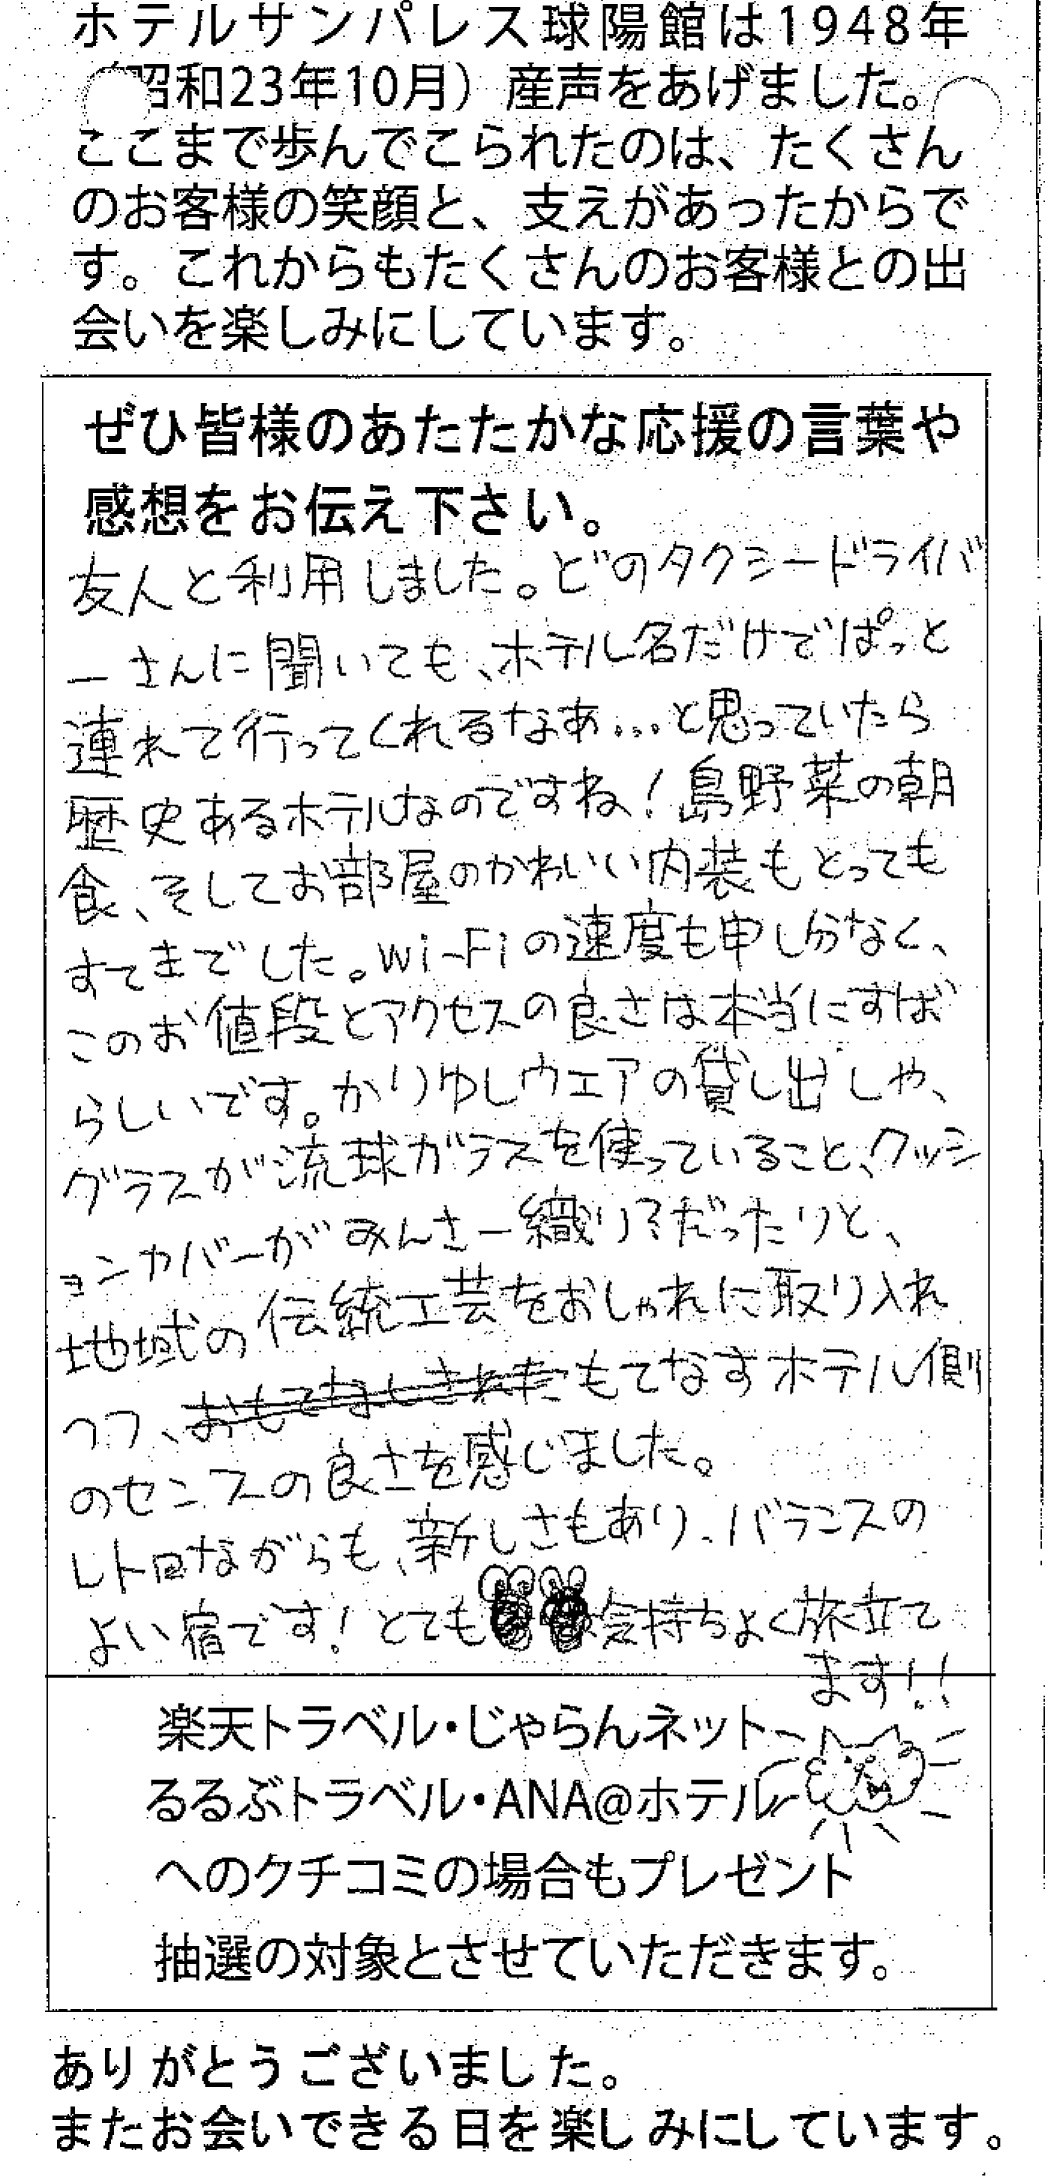 ホテルサンパレス球陽館は1948年
（昭和23年10月）産声をあげました。
ここまで歩んでこられたのは、たくさん
のお客様の笑顔と、支えがあったからで
す。これからもたくさんのお客様との出
会いを楽しみにしています。
ぜひ皆様のあたたかな応援の言葉や
感想をお伝え下さい。
友人と利用しました。どのタクシードライバ
ーさんに聞いても、ホテル名だけでぱっと
連れて行ってくれるなあ...と思っていたら
歴史あるホテルなのですね！島野菜の朝
食、そしてお部屋のかわいい内装もとっても
すてきでした。Wi-Fiの速度も申し分なく、
このお値段とアクセスの良さは本当にすば
らしいです。かりゆしウェアの貸し出しや、
グラスが流球ガラスを使っていること、クッシ
ョンカバーがみんさー織り？だったりと、
地域の伝統工芸をおしゃれに取り入れ
つつ、おもてなしされた もてなすホテル側
のセンスの良さを感じました。
レトロながらも、新しさもあり、バランスの
よい宿です！とても 気持ちよく旅立て
ます！！
楽天トラベル・じゃらんネット
るるぶトラベル・ANA@ホテル
へのクチコミの場合もプレゼント
抽選の対象とさせていただきます。
ありがとうございました。
またお会いできる日を楽しみにしています。